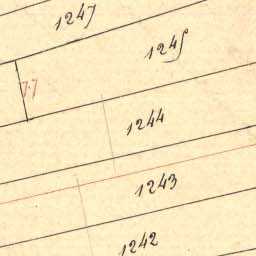 1247
1245
7.7
1244
1243
1242